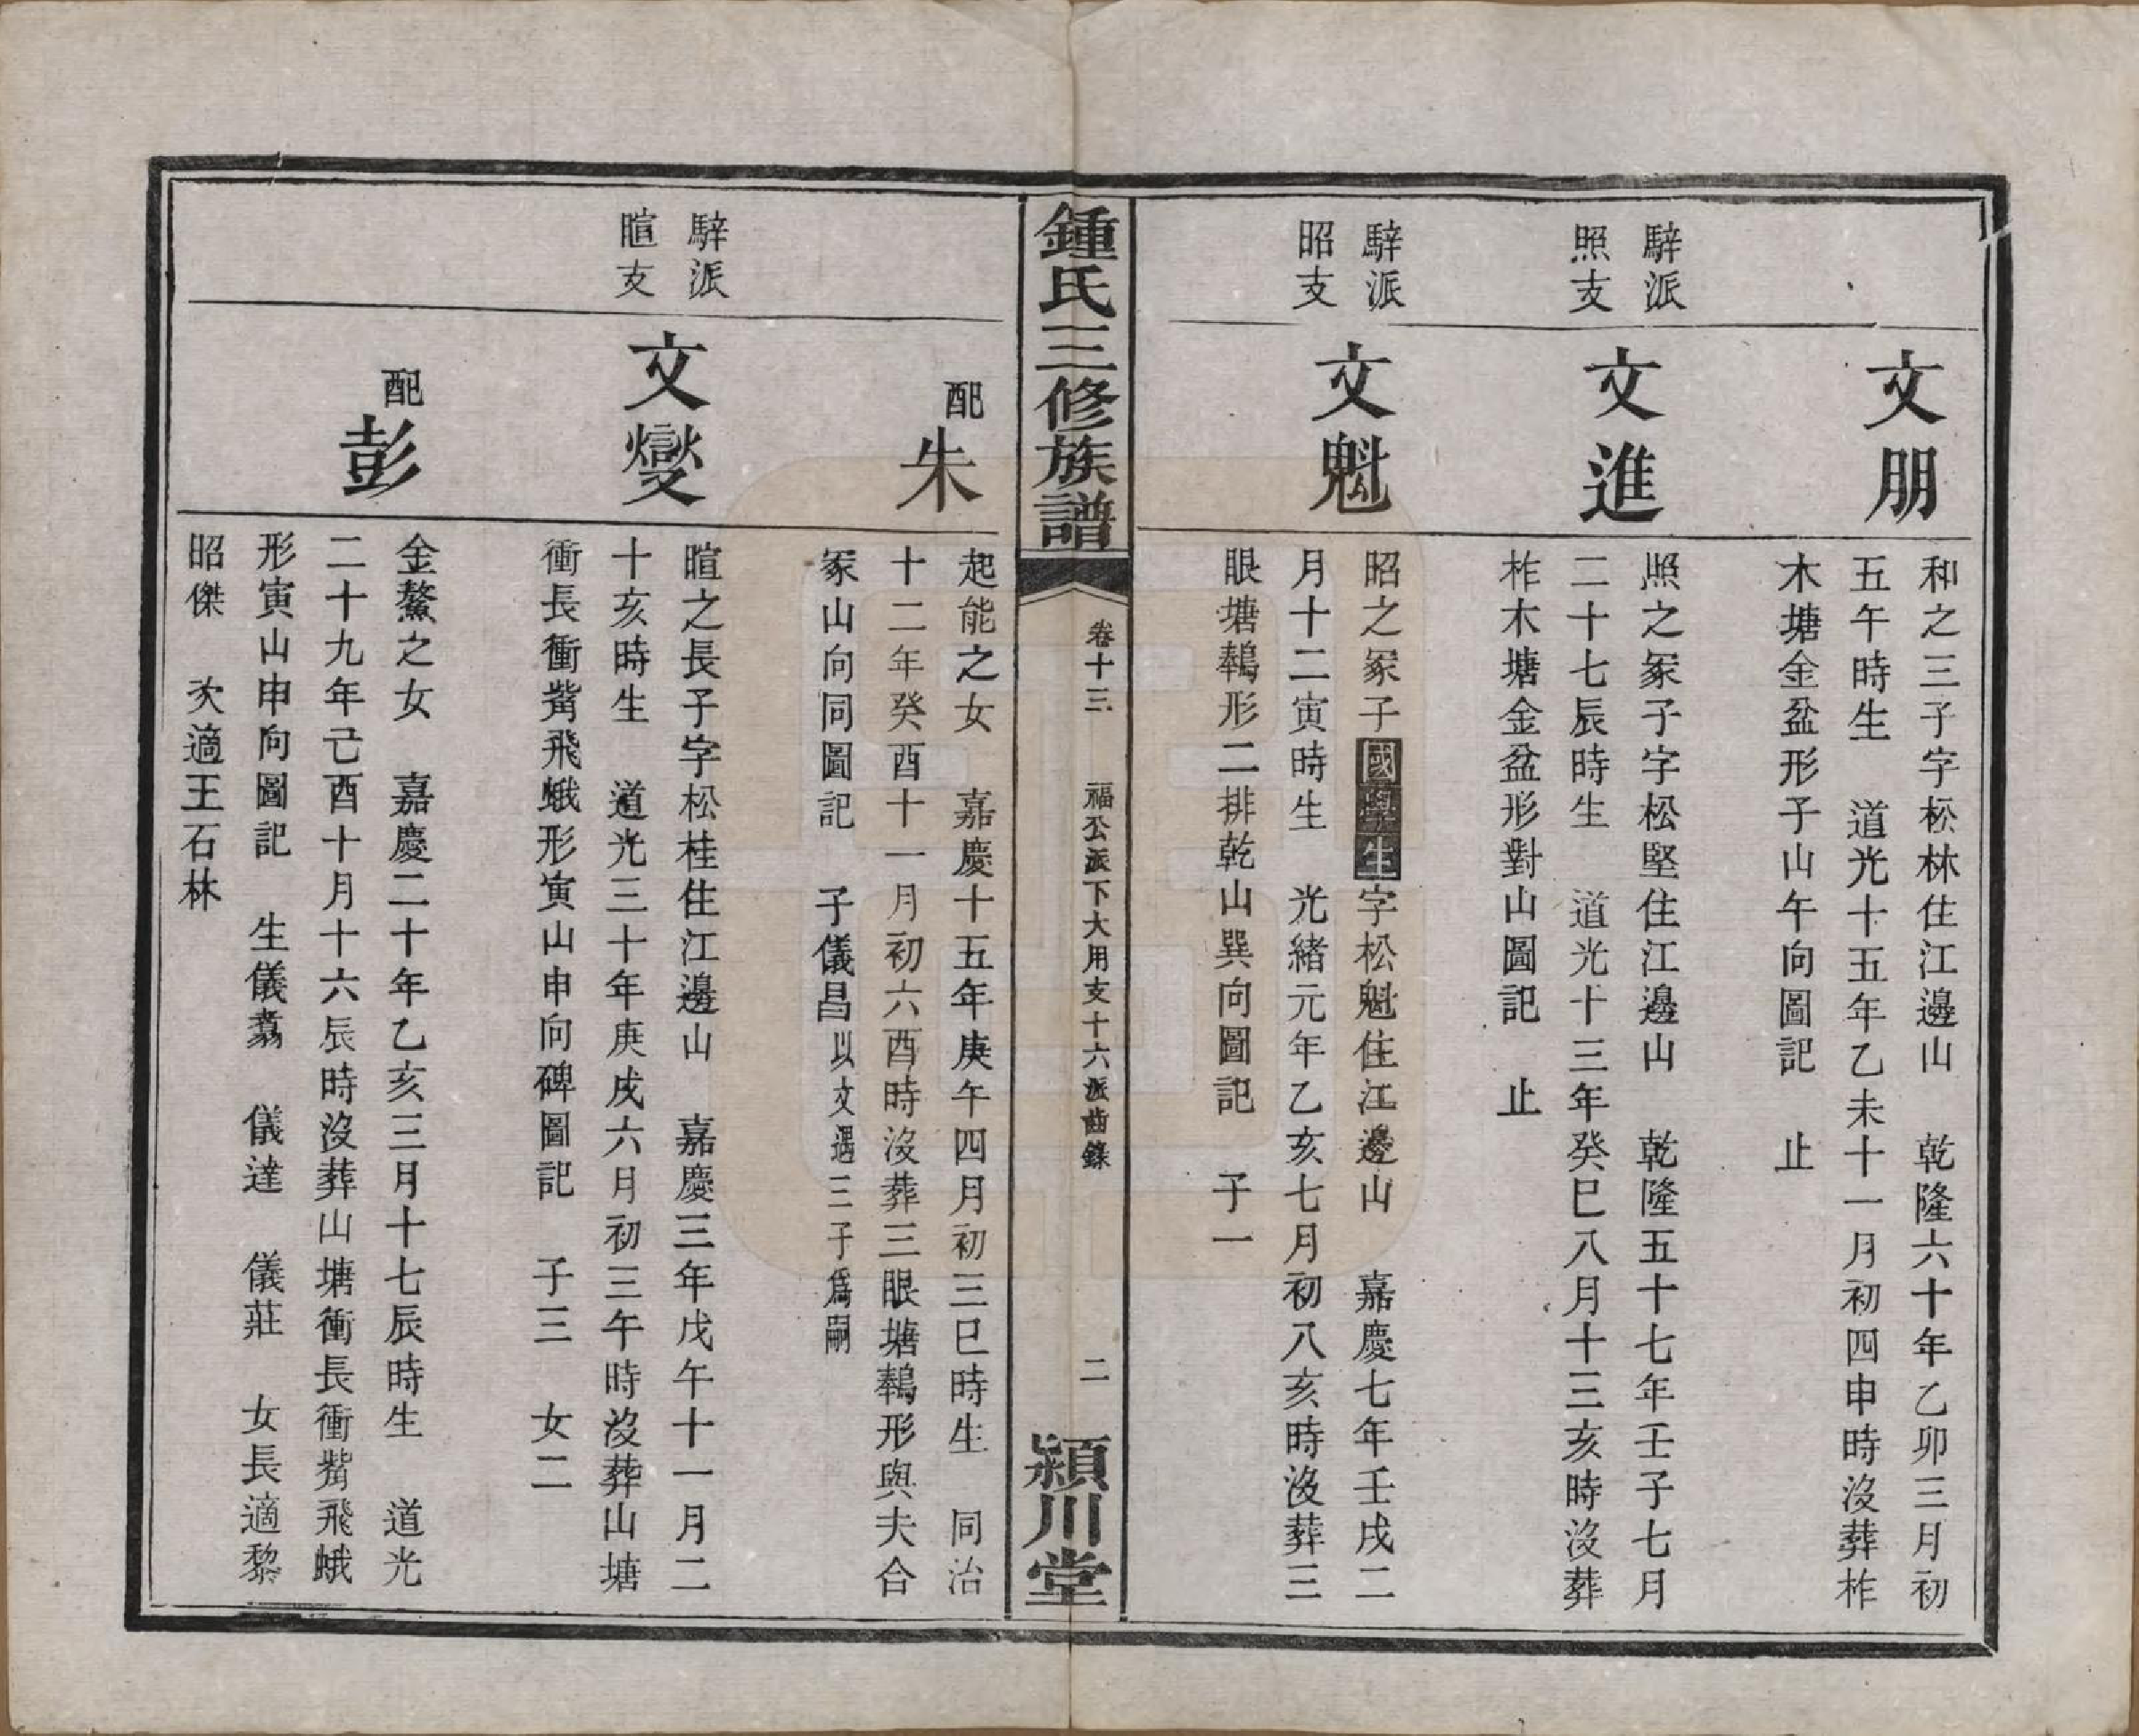 文朋
和之三子字松林住江邊山　乾隆六十年乙卯三月初
五午時生　道光十五年乙未十一月初四申時沒葬柞
木塘金盆形子山午向圖記　止
騂派
照支
文進
照之冢子字松堅住江邊山　乾隆五十七年壬子七月
二十七辰時生　道光十三年癸巳八月十三亥時沒葬
柞木塘金盆形對山圖記　止
騂派
昭支
文魁
昭之冢子國學生字松魁住江邊山　嘉慶七年壬戌二
月十二寅時生　光緒元年乙亥七月初八亥時沒葬三
眼塘鵪形二排乾山巽向圖記　子一
鍾氏三修族譜
卷十三　福公派下大用支十六派齒錄　二
潁川堂
配朱
起能之女　嘉慶十五年庚午四月初三巳時生　同治
十二年癸酉十一月初六酉時沒葬三眼塘鵪形與夫合
冢山向同圖記　子儀昌以文遇三子爲嗣
騂派
暄支
文燮
暄之長子字松桂住江邊山　嘉慶三年戊午十一月二
十亥時生　道光三十年庚戌六月初三午時沒葬山塘
衝長衝觜飛蛾形寅山申向碑圖記　子三　女二
配彭
金鰲之女　嘉慶二十年乙亥三月十七辰時生　道光
二十九年己酉十月十六辰時沒葬山塘衝長衝觜飛蛾
形寅山申向圖記　生儀翥　儀達　儀莊　女長適黎
昭傑　次適王石林